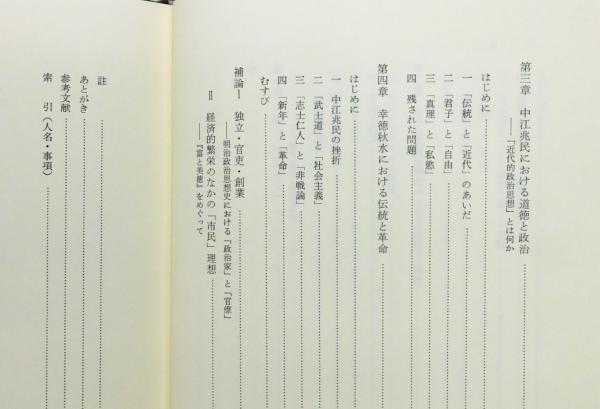 第三章　中江兆民における道徳と政治
――「近代的政治思想」とは何か
はじめに
一　「伝統」と「近代」のあいだ
二　「君子」と「自由」
三　「真理」と「私慾」
四　残された問題
第四章　幸徳秋水における伝統と革命
はじめに
一　中江兆民の挫折
二　「武士道」と「社会主義」
三　「志士仁人」と「非戦論」
四　「新年」と「革命」
むすび
補論Ⅰ　独立・官吏・創業
――明治政治思想史における「政治家」と「官僚」
Ⅱ　経済的繁栄のなかの「市民」理想
――『富と美徳』をめぐって
註
あとがき
参考文献
索　引（人名・事項）